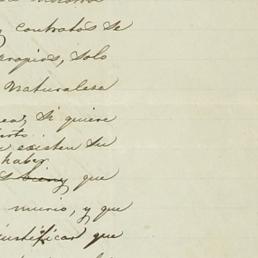 y contratos se
propios, solo
Naturalese
si quiere
existen su
haber
bieny que
murio, y que
justificar que